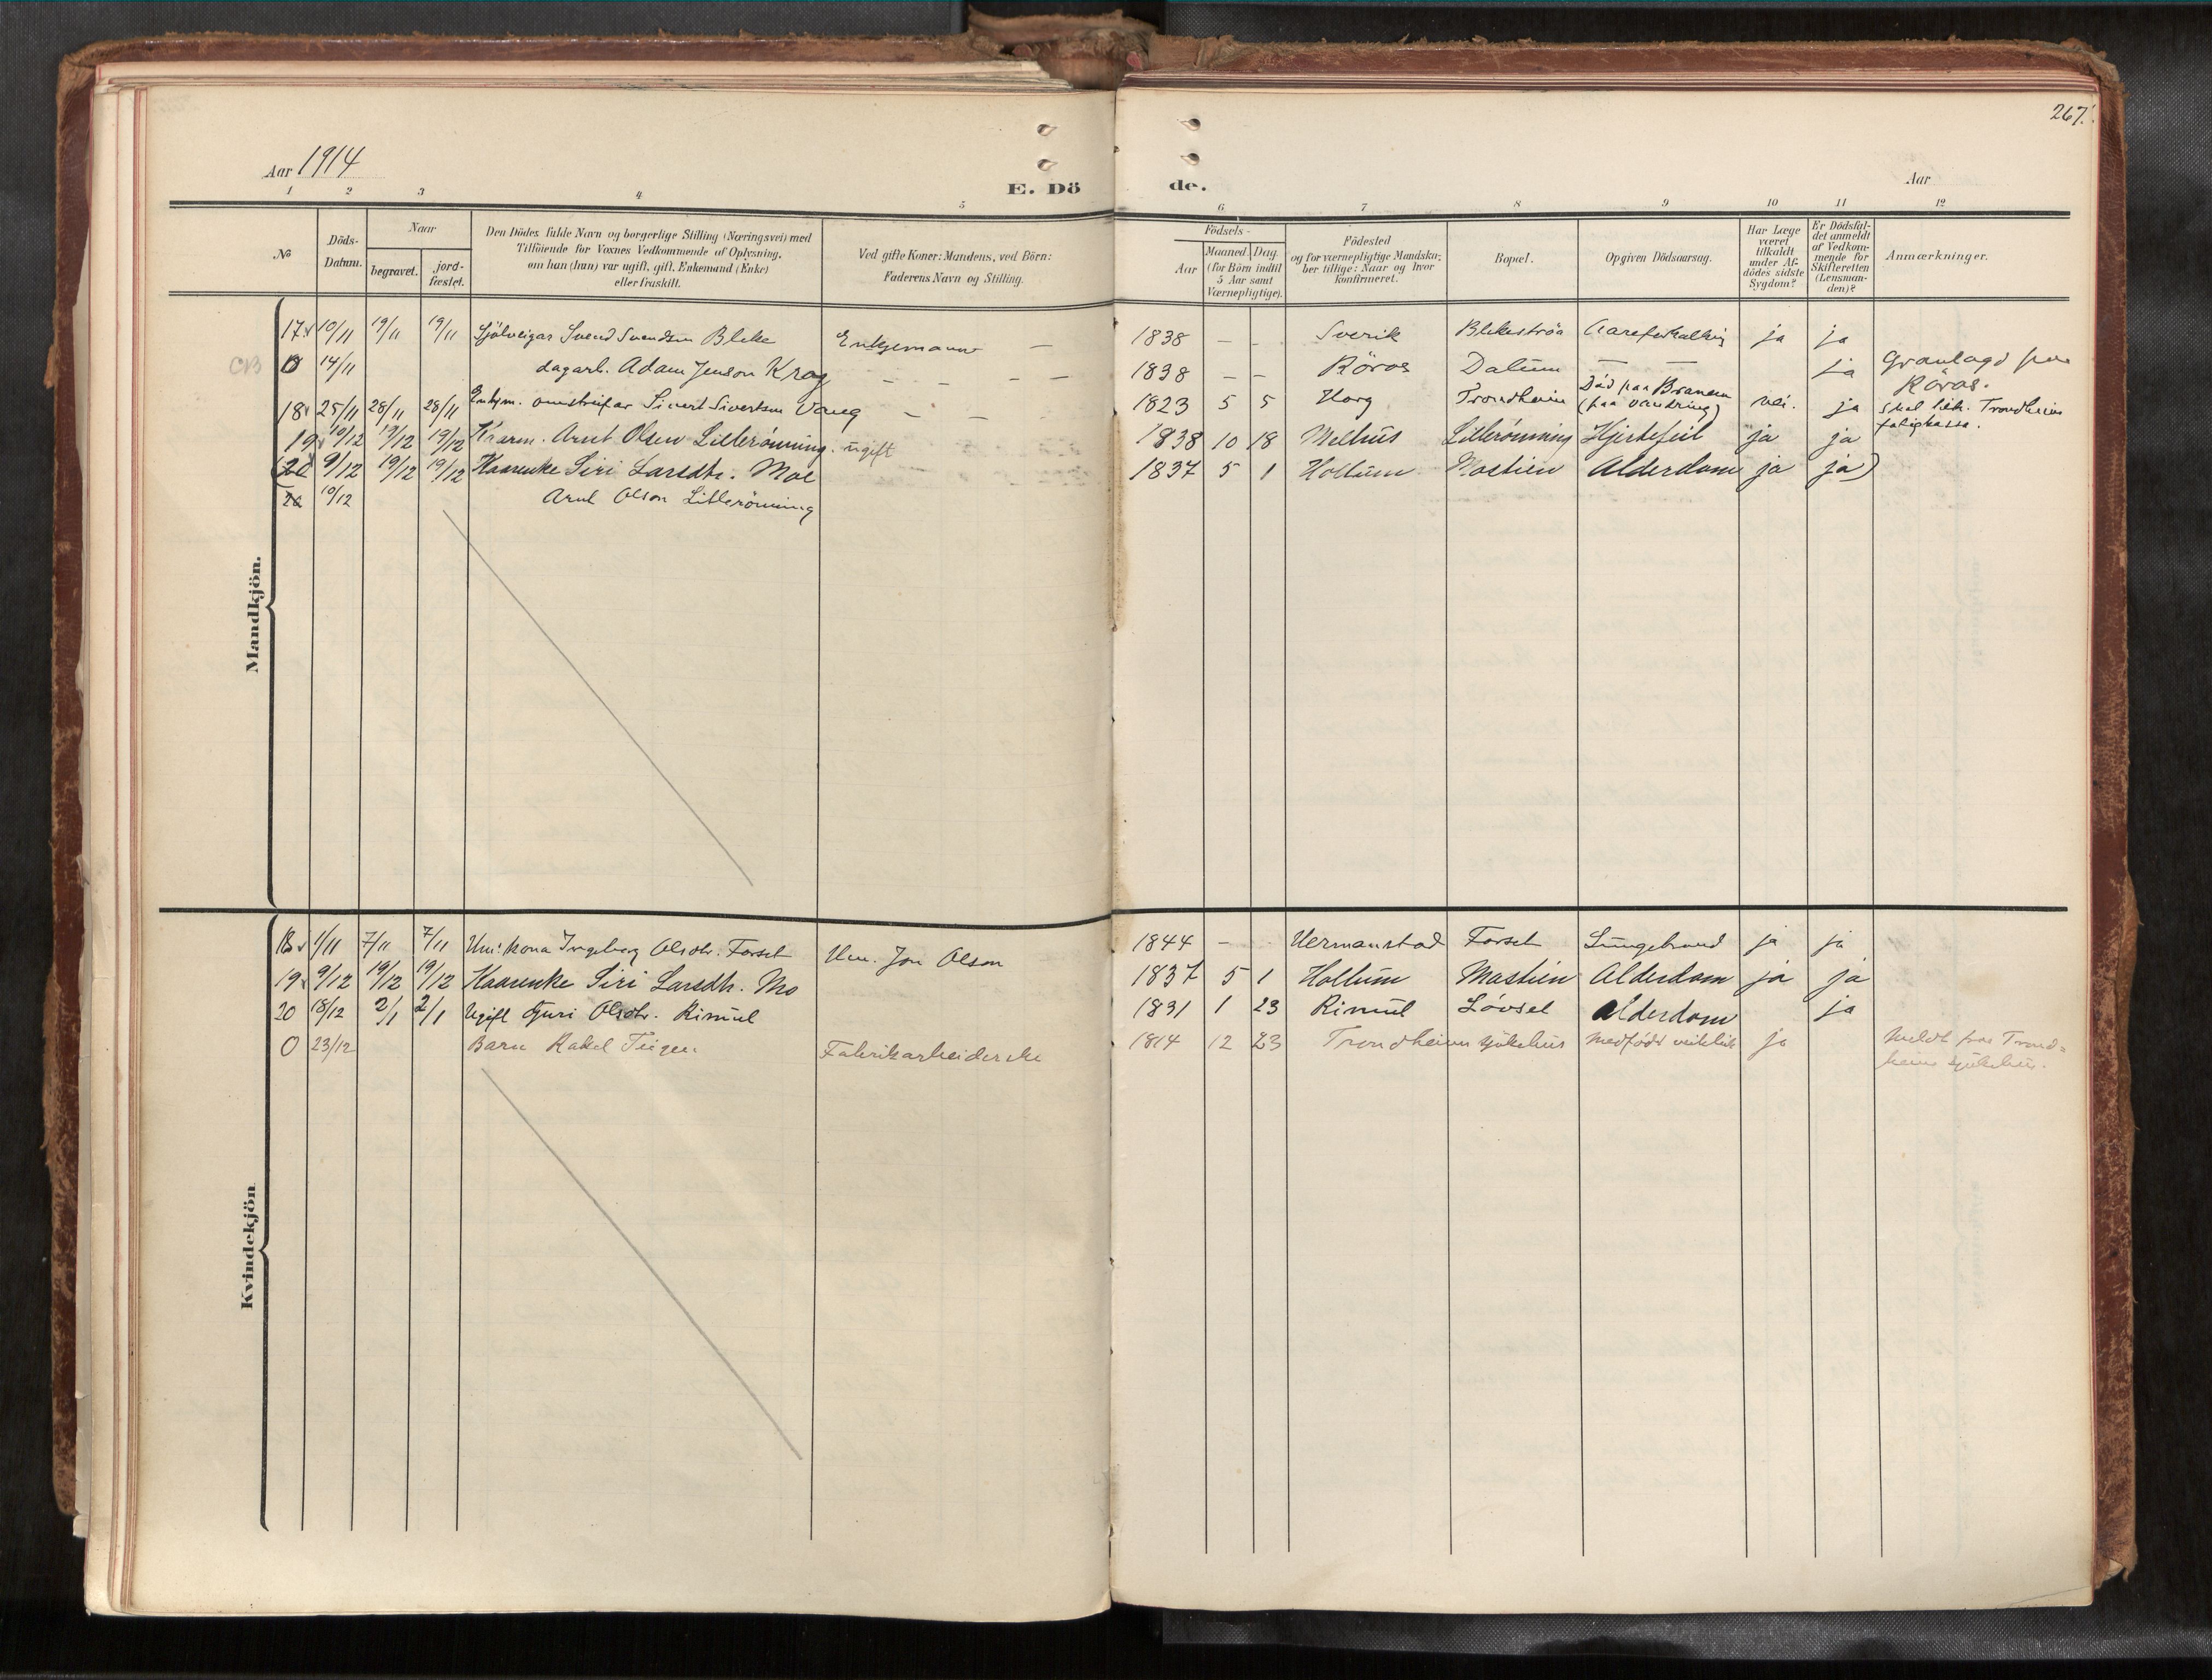 267.
Aar 1914
E. Dö
de.
Aar
1 2 3 4 5 6 7 8 9 10 11 12
No
Döds-
Datum.
Naar
begravet.
jord-
fæstet.
Den Dödes fulde Navn og borgerlige Stilling (Næringsvei) med
Tilföiende for Voxnes Vedkommende af Oplysning,
om han (hun) var ugift, gift, Enkemand (Enke)
eller fraskilt.
Ved gifte Koner: Mandens, ved Börn:
Faderens Navn og Stilling.
Födsels-
Aar
Maaned. Dag.
(for Börn indtil
5 Aar samt
Værnepligtige).
Födested
og for værnepligtige Mandska-
ber tillige: Naar og hvor
konfirmeret.
Bopæl.
Opgiven Dödsaarsag.
Har Læge
været
tilkaldt
under Af-
dödes sidste
Sygdom?
Er Dödsfal-
det anmeldt
af Vedkom-
mende for
Skifteretten
(Lensman-
den)?
Anmærkninger.
Mandkjön.
17 10/11 19/11 19/11 Sjölveigar Svend Svendsen Bleke Enkjemann — 1838 — — Sverik Blekeströa Aareforkalking ja ja
CB 0 14/11 dagarb. Adam Jenson Krog — — — — 1838 — — Röros Dalum — — ja Gravlagd paa
Röros.
18 25/11 28/11 28/11 Enkjm. omstreifar Sivert Sivertsen Vang — — 1823 5 5 Horg Trondheim Död paa Braneen
(paa vandring) nei. ja skal tilh. Trondheim
fatigkassa.
19 10/12 19/12 19/12 Kaarm. Arnt Olsen Lillerönning. ugift 1838 10 18 Melhus Lillerönning Hjertefeil ja ja
(20 9/12 19/12 19/12 Kaarenke Siri Larsdtr. Moe 1837 5 1 Holtum Mostien Alderdom ja ja)
20 10/12 Arnt Olson Lillerönning
Kvindekjön
18 1/11 7/11 7/11 Hm: kona Ingeborg Olsdtr. Forset Hm. Jon Olson 1844 — Hermanstad Forset Lungebrand ja ja
19 9/12 19/12 19/12 Kaarenke Siri Larsdtr. Mo 1837 5 1 Holtum Mostien Alderdom ja ja
20 18/12 2/1 2/1 Ugift Guri Olsdtr. Rimul 1831 1 23 Rimul Lövset Alderdom ja
0 23/12 Barn Rakel Teigen Fabrikarbeiderske 1814 12 23 Trondheims sjükehus Medfödt ja Meldt fra Trond=
heim sjükehus.